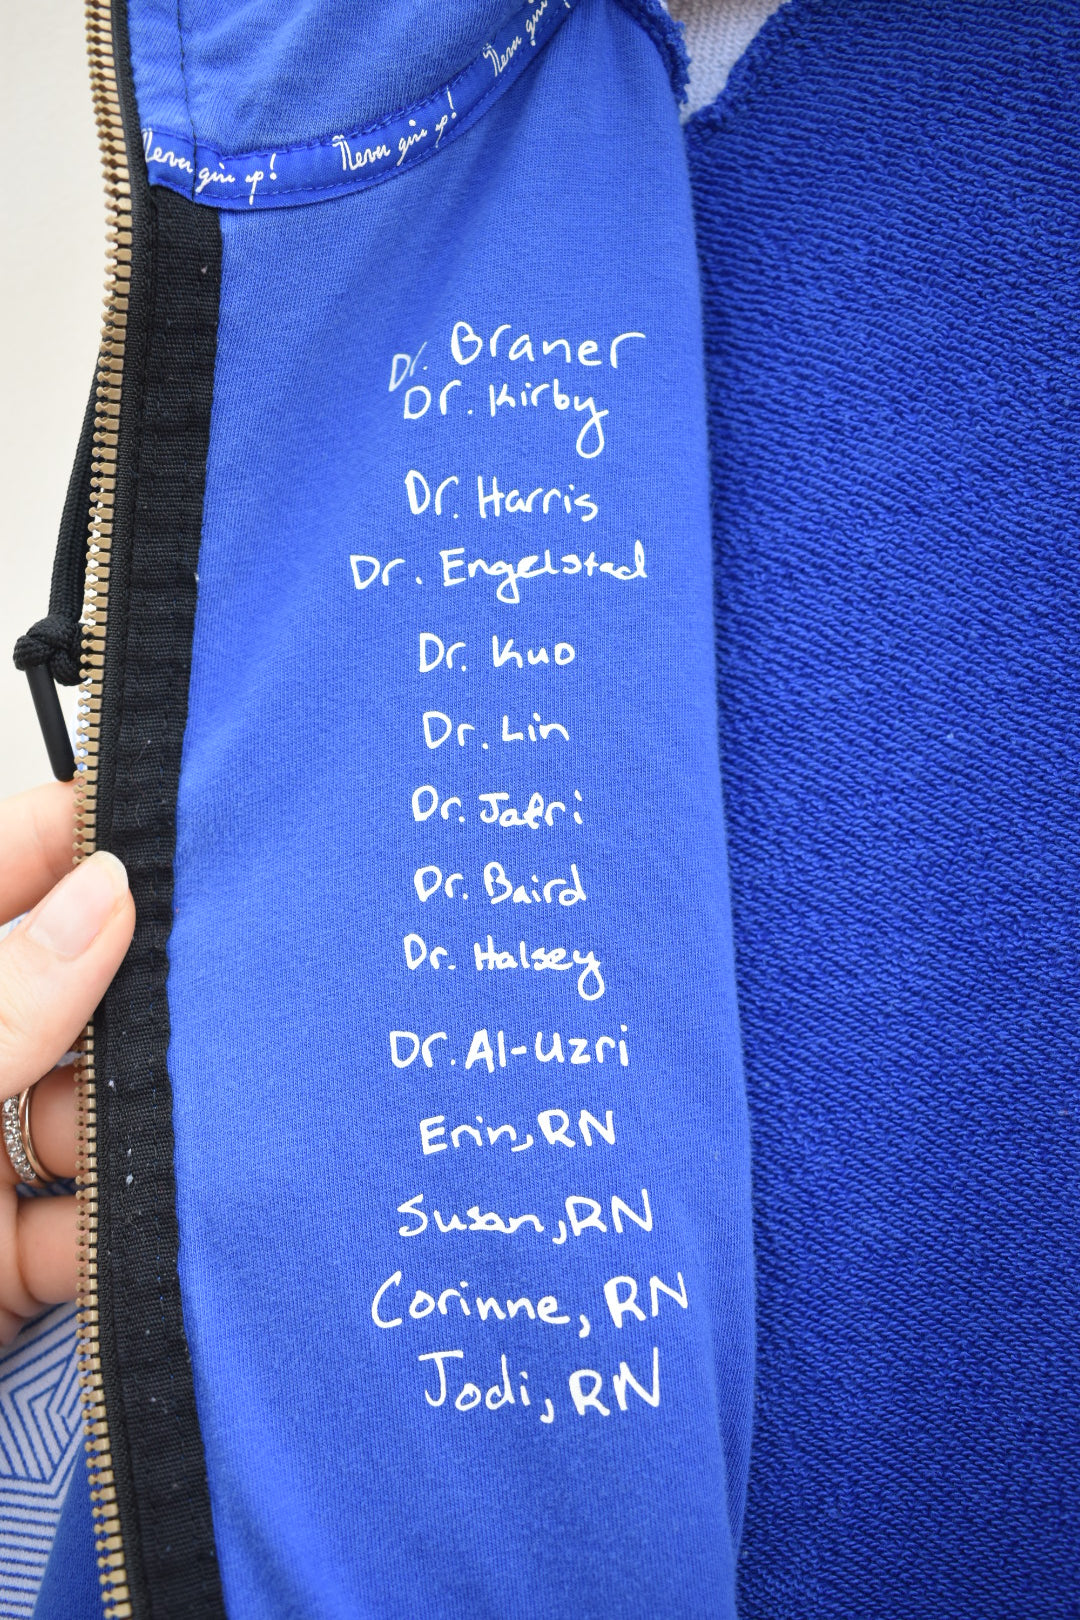 Never give up! Never give up! Never give
Dr. Braner
Dr. Kirby
Dr. Harris
Dr. Engelstad
Dr. Kuo
Dr. Lin
Dr. Jafri
Dr. Baird
Dr. Halsey
Dr. Al-Uzri
Erin, RN
Susan, RN
Corinne, RN
Jodi, RN